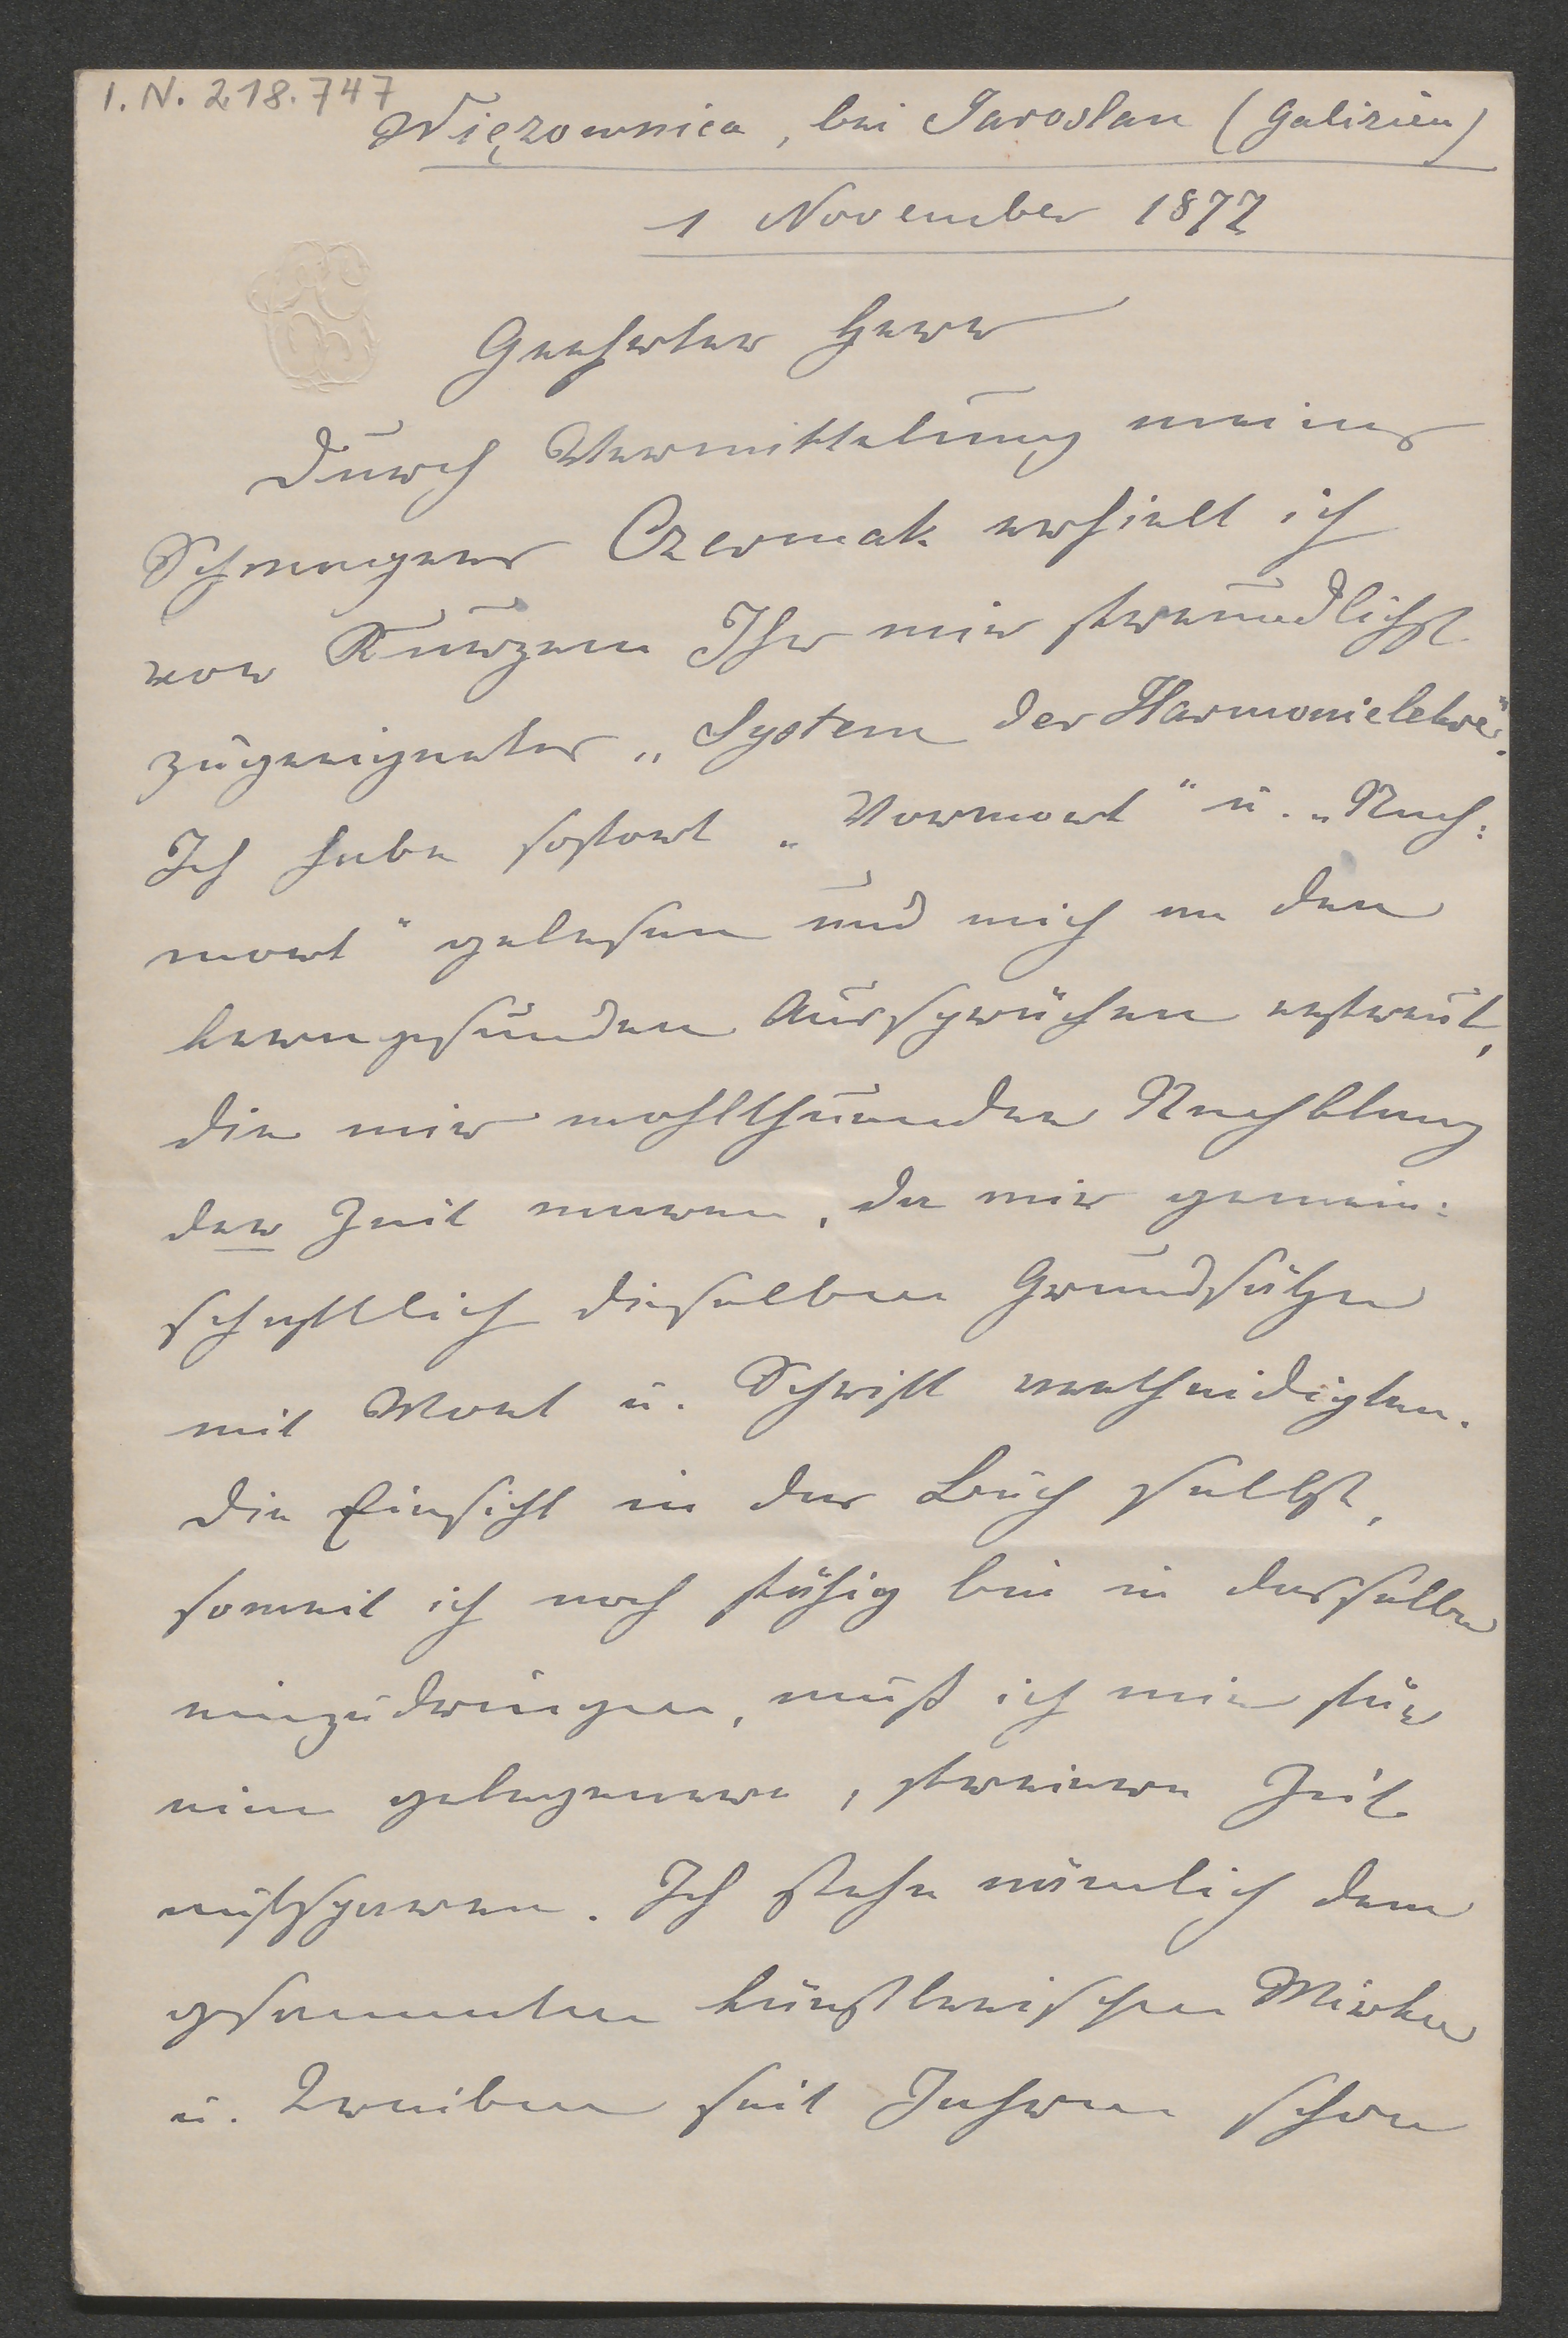 I. N. 218.747
Więzownica, bei Jaroslau (Galizien)
1 November 1877
Geehrter Herr
Durch Vermittelung meines
Schwagers Czermak erhielt ich
vor Kurzem Ihr mir freundlichst
zugeeignetes „System der Harmonielehre".
Ich habe sofort „Vorwort" u. „Nach:
wort" gelesen und mich an den
kerngesunden Aussprüchen erfreut,
die mir wohlthuender Nachklang
der Zeit waren, da wir gemein:
schaftlich dieselben Grundsätze
mit Wort u. Schrift vertheidigten.
Die Einsicht in das Buch selbst,
soweit ich noch fähig bin in dasselbe
einzudringen, muß ich mir für
eine gelegenere, freiere Zeit
aufsparen. Ich stehe nämlich dem
gesammten künstlerischen Wirken
u. Treiben seit Jahren schon